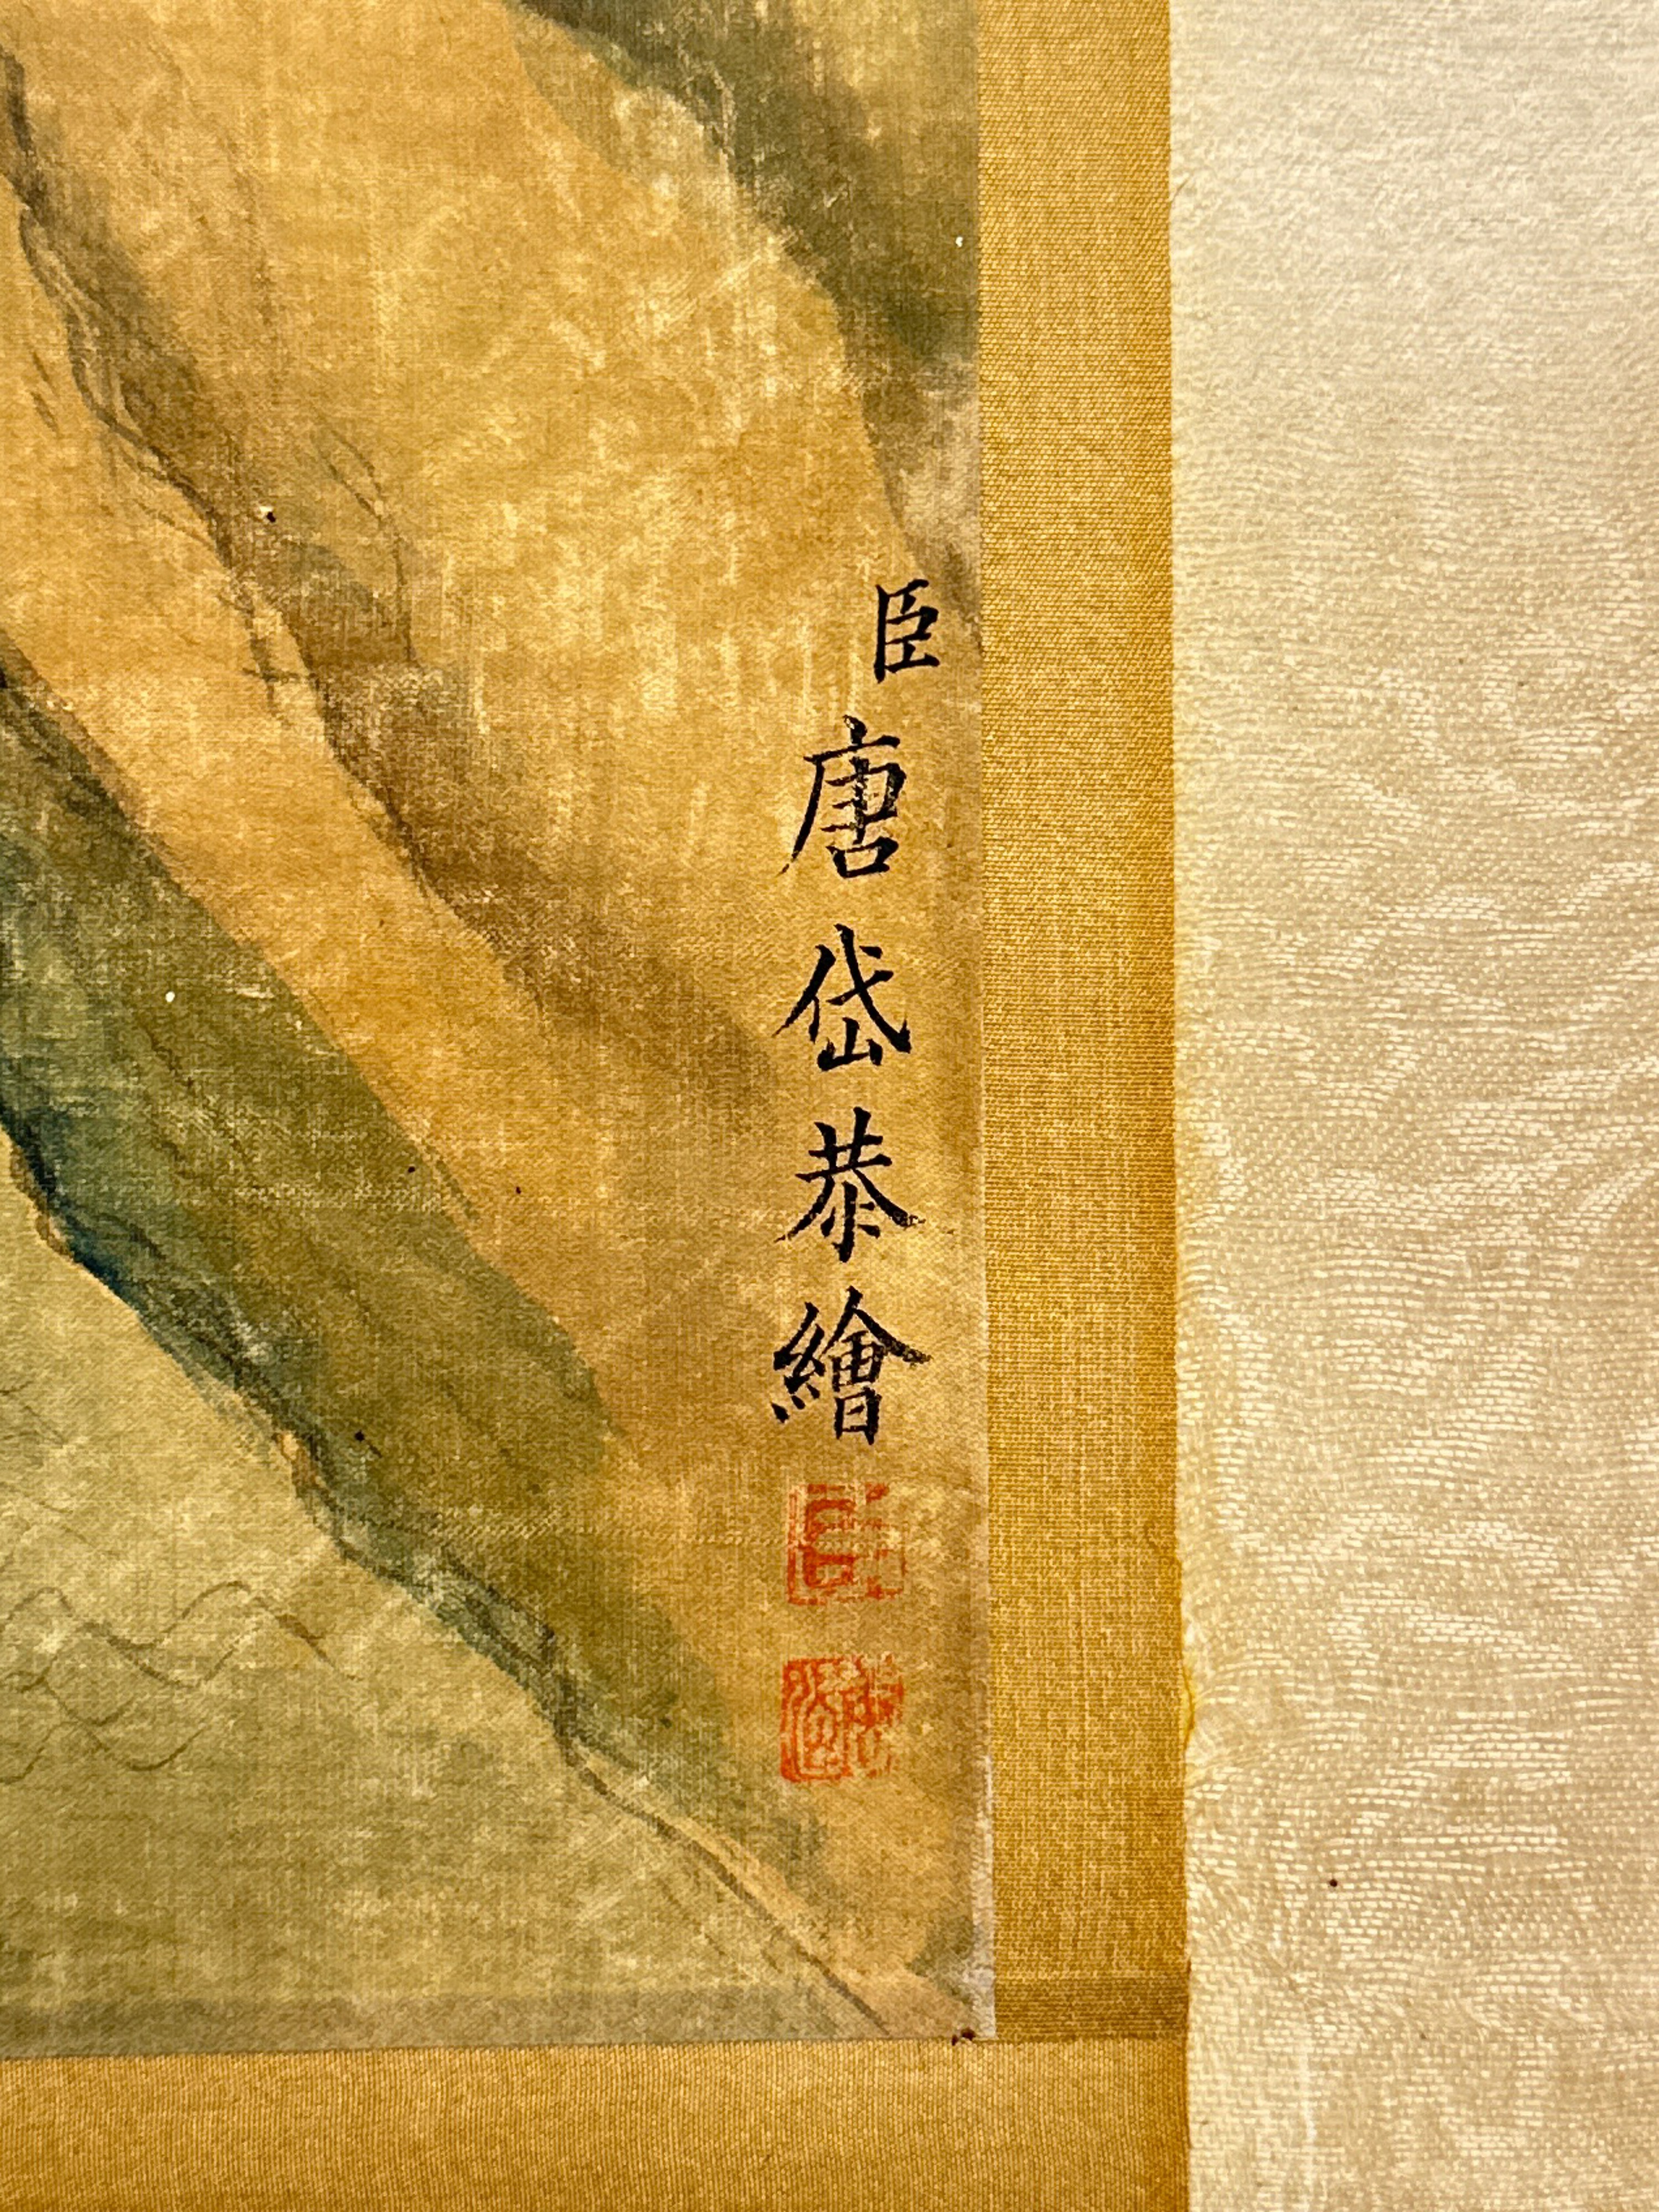 臣唐岱恭繪